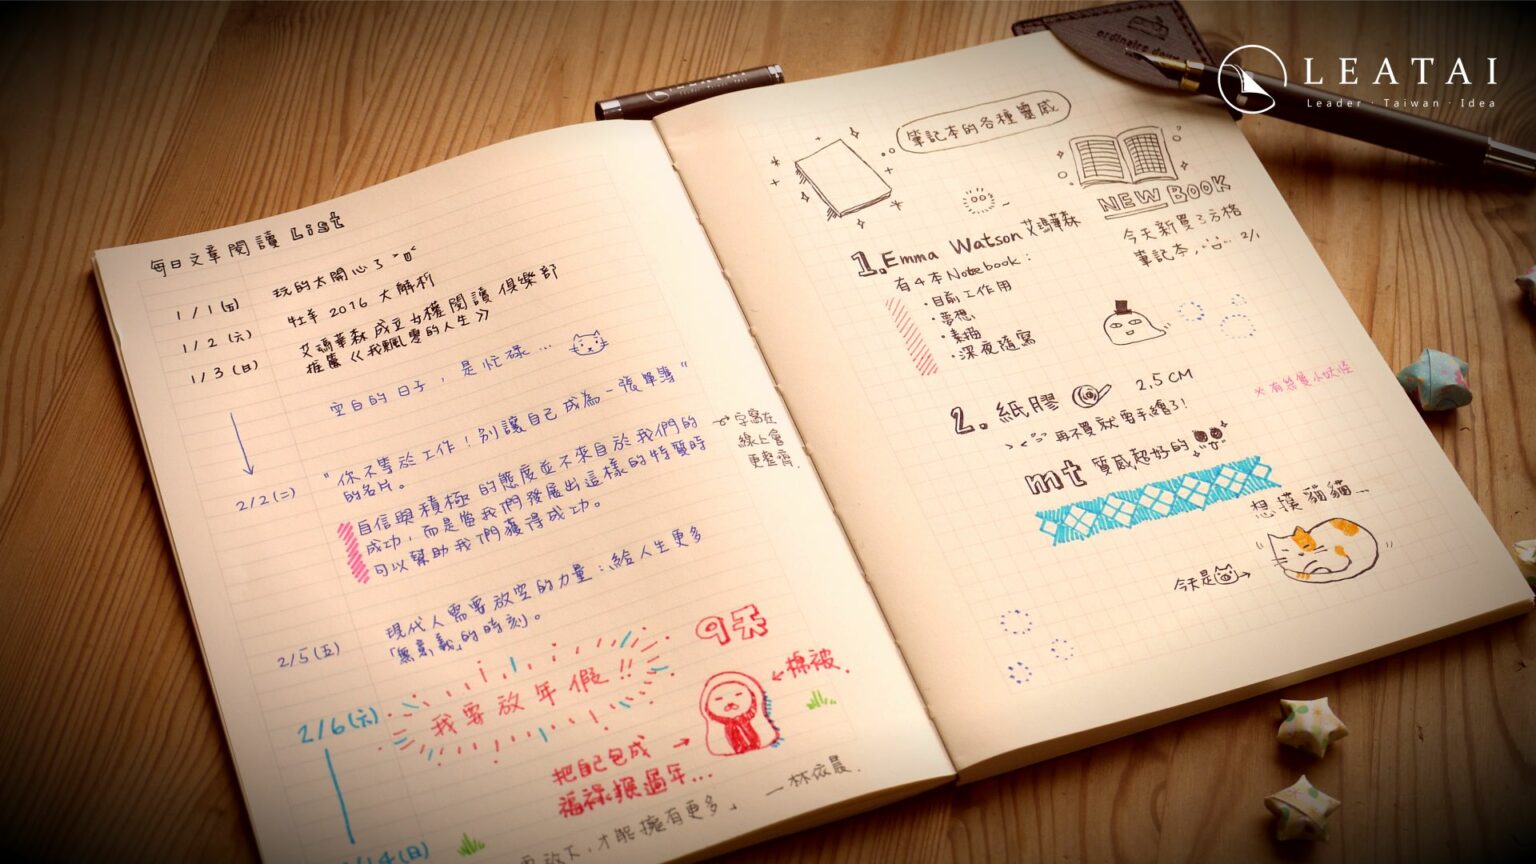 LEATAI
Leader · Taiwan · Idea
每日文章閱讀 List
1/1(五) 玩的太開心了
1/2(六) 牡羊 2016 大解析
1/3(日) 艾瑪華森成立女權閱讀俱樂部
推薦《我飄零的人生》
空白的日子，是忙碌...
2/2(二) "你不等於工作！別讓自己成為一張單薄"
的名片。
自信與積極的態度並不來自於我們的
成功，而是當我們發展出這樣的特質時
可以幫助我們獲得成功。
字寫在
線上會
更整齊.
2/5(五) 現代人需要放空的力量：給人生更多
「無意義」的時刻。
9天
2/6(六) 我要放年假!!
棉被.
把自己包成
福祿猴過年...
2/14(日)
放下，才能擁有更多」 —林依晨.
筆記本的各種靈感
NEW BOOK
今天新買了方格
筆記本, 2/1
1. Emma Watson 艾瑪華森
有4本Notebook：
·目前工作用
·夢想
·素描
·深夜隨寫
2. 紙膠 2.5CM
再不買就要手繪了!
※有幾隻小妖怪
mt 質感超好的
想摸貓貓...
今天是